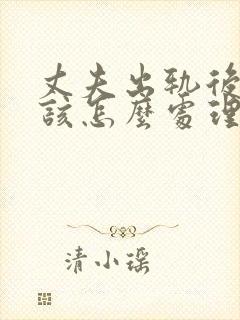 丈夫出轨後
該怎麼處理
清小瑶